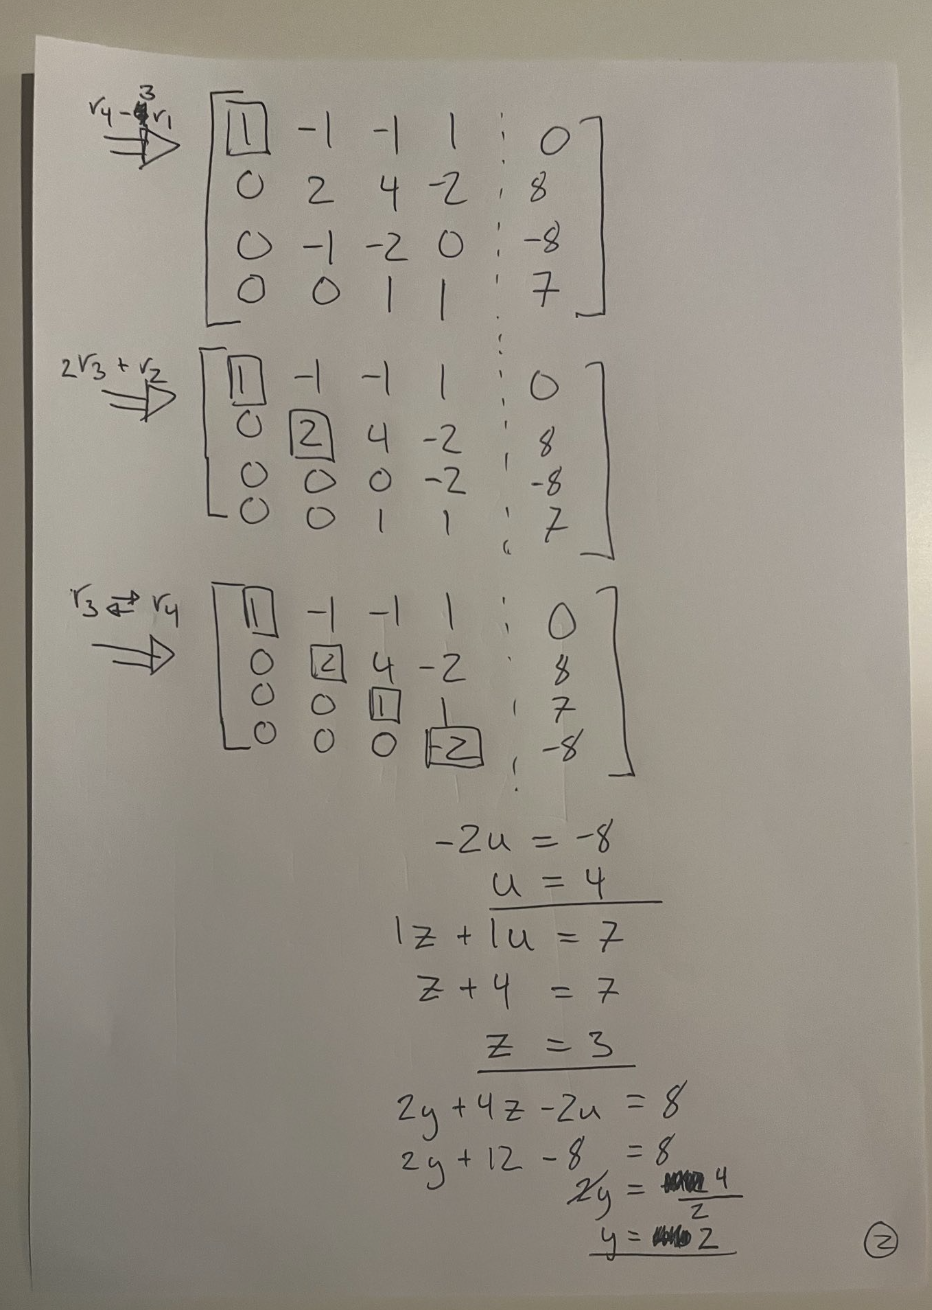 r4 - 3r1
1 -1 -1 1 ⋮ 0
0 2 4 -2 ⋮ 8
0 -1 -2 0 ⋮ -8
0 0 1 1 ⋮ 7
2r3 + r2
1 -1 -1 1 ⋮ 0
0 2 4 -2 ⋮ 8
0 0 0 -2 ⋮ -8
0 0 1 1 ⋮ 7
r3 ⇄ r4
1 -1 -1 1 ⋮ 0
0 2 4 -2 ⋮ 8
0 0 1 1 ⋮ 7
0 0 0 -2 ⋮ -8
-2u = -8
u = 4
1z + 1u = 7
z + 4 = 7
z = 3
2y + 4z - 2u = 8
2y + 12 - 8 = 8
2y = 4
2
y = 2
2